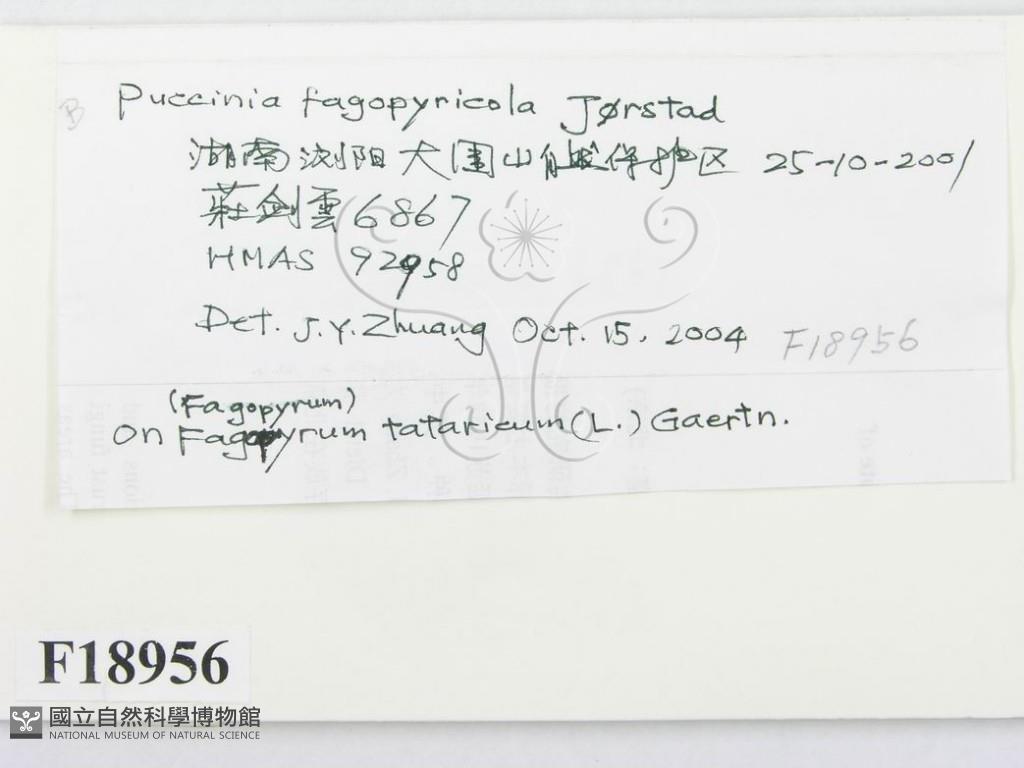 B
Puccinia fagopyricola Jørstad
湖南浏阳大围山自然保护区 25-10-2001
莊劍雲 6867
HMAS 92958
Det. J.Y.Zhuang Oct. 15, 2004 F18956
(Fagopyrum)
On Fagopyrum tataricum (L.) Gaertn.
F18956
國立自然科學博物館
NATIONAL MUSEUM OF NATURAL SCIENCE